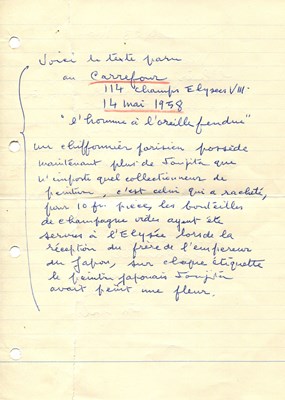 Voici le texte paru
au Carrefour
114 Champs Elysées VIII.
14 mai 1958
"l'homme à l'oreille fendue"
un chiffonnier parisien possède
maintenant plus de Foujita que
n'importe quel collectionneur de
peinture, c'est celui qui a racheté,
pour 10 fr. pièce, les bouteilles
de champagne vides ayant été
servies à l'Elysée lors de la
réception du frère de l'empereur
du Japon, sur chaque étiquette
le peintre japonais Foujita
avait peint une fleur.